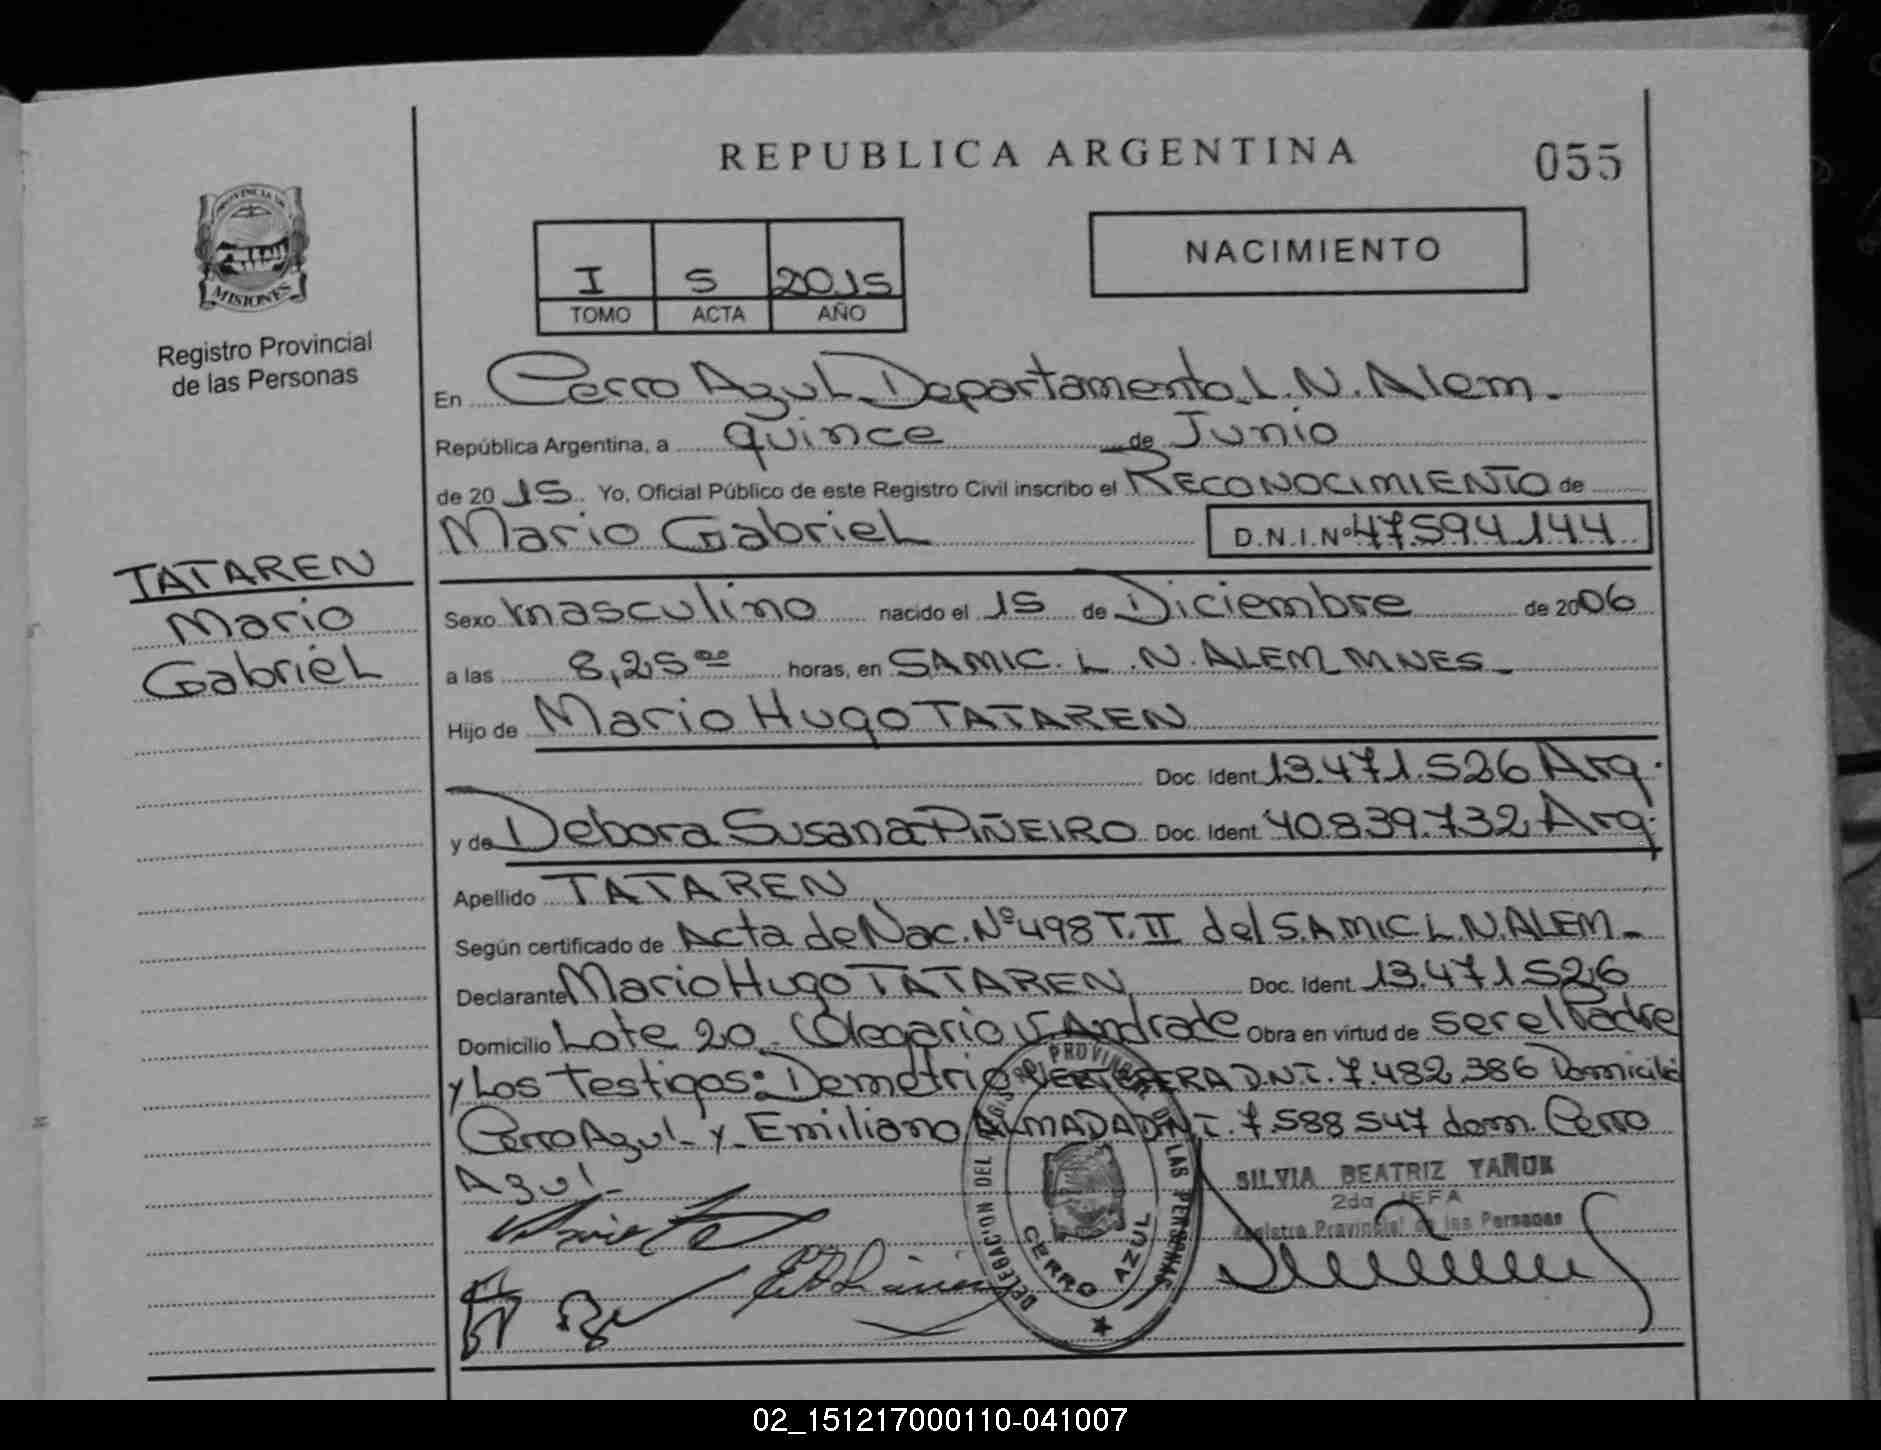 REPUBLICA ARGENTINA
055
PROVINCIA DE
MISIONES
Registro Provincial
de las Personas
I S 2015
TOMO ACTA AÑO
NACIMIENTO
En Cerro Azul Departamento L.N. Alem.
República Argentina, a quince de Junio
de 2015. Yo, Oficial Público de este Registro Civil inscribo el RECONOCIMIENTO de
Mario Gabriel D.N.I.Nº 47.594.144
TATAREN
Mario
Gabriel
Sexo masculino nacido el 15 de Diciembre de 2006
a las 8,25 horas, en SAMIC. L.N. ALEM MNES
Hijo de Mario Hugo TATAREN
Doc. Ident. 13.471.526 Arg.
y de Debora Susana PIÑEIRO Doc. Ident. 40.839.732 Arg.
Apellido TATAREN
Según certificado de Acta de Nac. Nº 498 T. II del S.AMIC L.N. ALEM
Declarante Mario Hugo TATAREN Doc. Ident. 13.471526
Domicilio Lote 20 Colegario V. Andrade Obra en virtud de ser el Padre
y Los Testigos: Demetrio D.N.I. 7.482.386 Domicilio
Cerro Azul y Emiliano ALMADA D.N.I. 7.588.547 dom. Cerro
Azul
DELEGACION DEL REGISTRO PROVINCIAL DE LAS PERSONAS
CERRO AZUL
SILVIA BEATRIZ YAÑUK
2da JEFA
Registro Provincial de las Personas
02_151217000110-041007